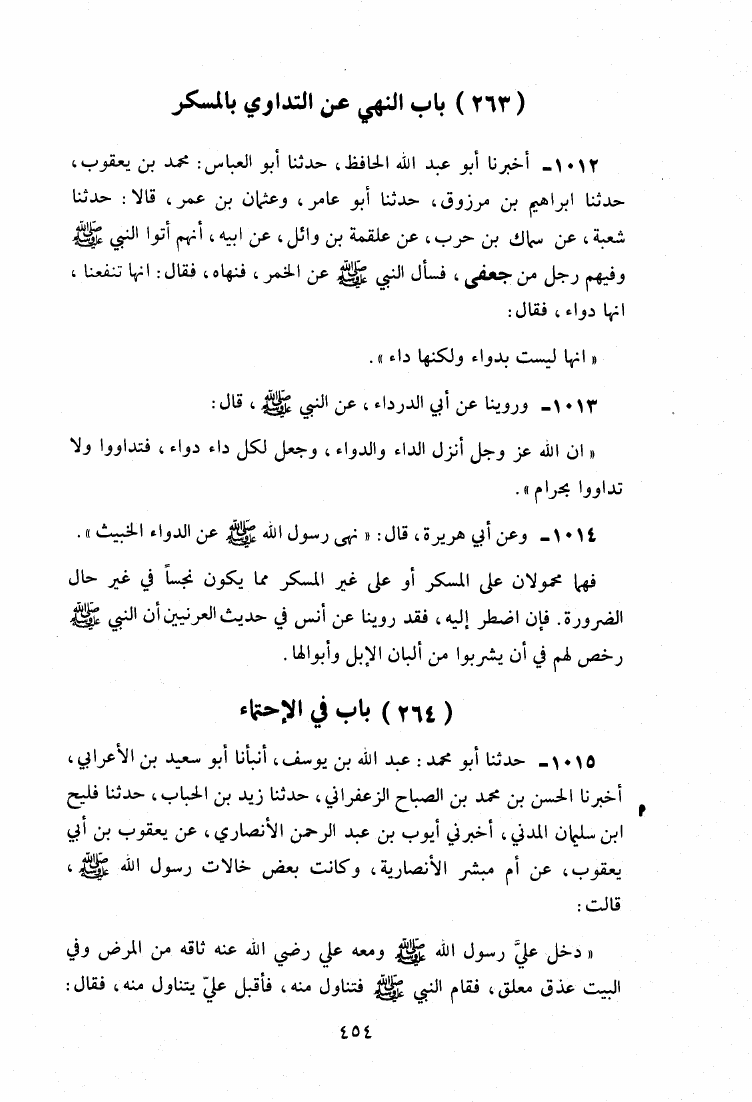 ( ٢٦٣ ) باب النهي عن التداوي بالمسكر
١٠١٢ـ أخبرنا أبو عبد الله الحافظ، حدثنا أبو العباس: محمد بن يعقوب،
حدثنا ابراهيم بن مرزوق، حدثنا أبو عامر، وعثمان بن عمر، قالا: حدثنا
شعبة، عن سماك بن حرب، عن علقمة بن وائل، عن ابيه، أنهم أتوا النبي ﷺ
وفيهم رجل من جعفى، فسأل النبي ﷺ عن الخمر، فنهاه، فقال: انها تنفعنا،
انها دواء، فقال:
« انها ليست بدواء ولكنها داء ».
١٠١٣ـ وروينا عن أبي الدرداء، عن النبي ﷺ، قال:
« ان الله عز وجل أنزل الداء والدواء، وجعل لكل داء دواء، فتداووا ولا
تداووا بحرام ».
١٠١٤ـ وعن أبي هريرة، قال: « نهى رسول الله ﷺ عن الدواء الخبيث ».
فهما محمولان على المسكر أو على غير المسكر مما يكون نجساً في غير حال
الضرورة. فإن اضطر إليه، فقد روينا عن أنس في حديث العرنيين أن النبي ﷺ
رخص لهم في أن يشربوا من ألبان الإبل وأبوالها.
( ٢٦٤ ) باب في الإحتماء
١٠١٥ـ حدثنا أبو محمد: عبد الله بن يوسف، أنبأنا أبو سعيد بن الأعرابي،
أخبرنا الحسن بن محمد بن الصباح الزعفراني، حدثنا زيد بن الحباب، حدثنا فليح
ابن سليمان المدني، أخبرني أيوب بن عبد الرحمن الأنصاري، عن يعقوب بن أبي
يعقوب، عن أم مبشر الأنصارية، وكانت بعض خالات رسول الله ﷺ،
قالت:
« دخل عليَّ رسول الله ﷺ ومعه علي رضي الله عنه ثاقه من المرض وفي
البيت عذق معلق، فقام النبي ﷺ فتناول منه، فأقبل عليّ يتناول منه، فقال:
٤٥٤